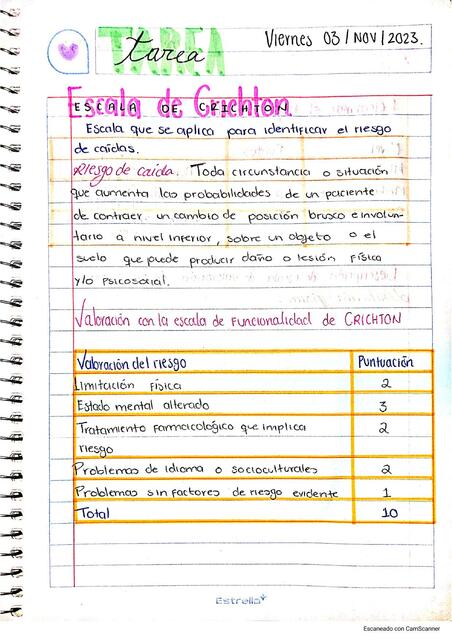 TAREA
tarea
Viernes 03/NOV/2023.
Escala de Crichton
ESCALA DE CRICHTON
Escala que se aplica para identificar el riesgo
de caídas.
Riesgo de caída. Toda circunstancia o situación
que aumenta las probabilidades de un paciente
de contraer un cambio de posición brusco e involun-
tario a nivel inferior, sobre un objeto o el
suelo que puede producir daño o lesión física
y/o psicosocial.
Valoración con la escala de Funcionalidad de CRICHTON
Valoración del riesgo Puntuación
Limitación física 2
Estado mental alterado 3
Tratamiento farmcicológico que implica 2
riesgo
Problemas de idioma o socioculturales 2
Problemas sin factores de riesgo evidente 1
Total 10
Estrella
Escaneado con CamScanner